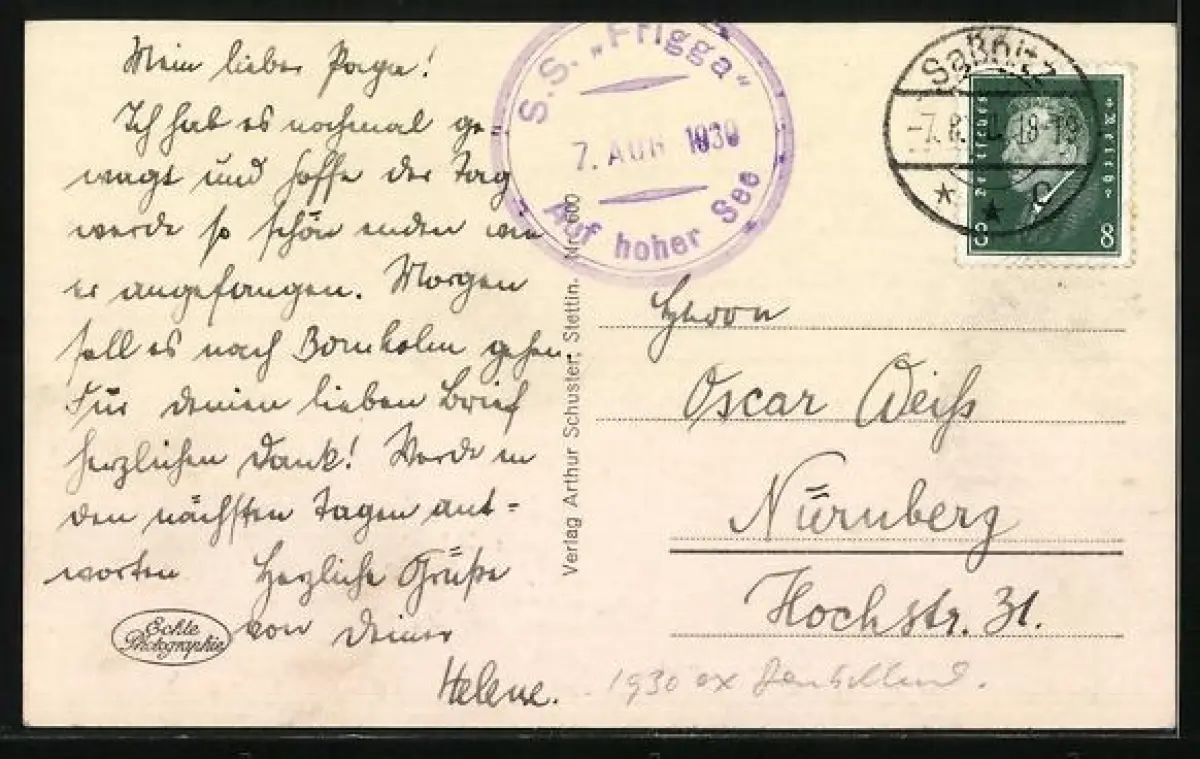 Mein lieber Papa!
Ich hab es nochmal ge-
wagt und hoffe der Tag
werde so schön enden wie
er angefangen. Morgen
soll es nach Bornholm gehen.
Für deinen lieben Brief
herzlichen Dank! Werde in
den nächsten Tagen ant=
worten Herzliche Grüße
von Deiner
Helene.
Echte
Photographie
Verlag Arthur Schuster, Stettin. Nr. 600
S.S. „Frigga“
7. AUG 1930
Auf hoher See
Saßnitz
-7.8. 18-19
* * c
Deutsches Reich
8 8
Herrn
Oscar Weiß
Nürnberg
Hochstr. 31.
1930 ex Deutschland.